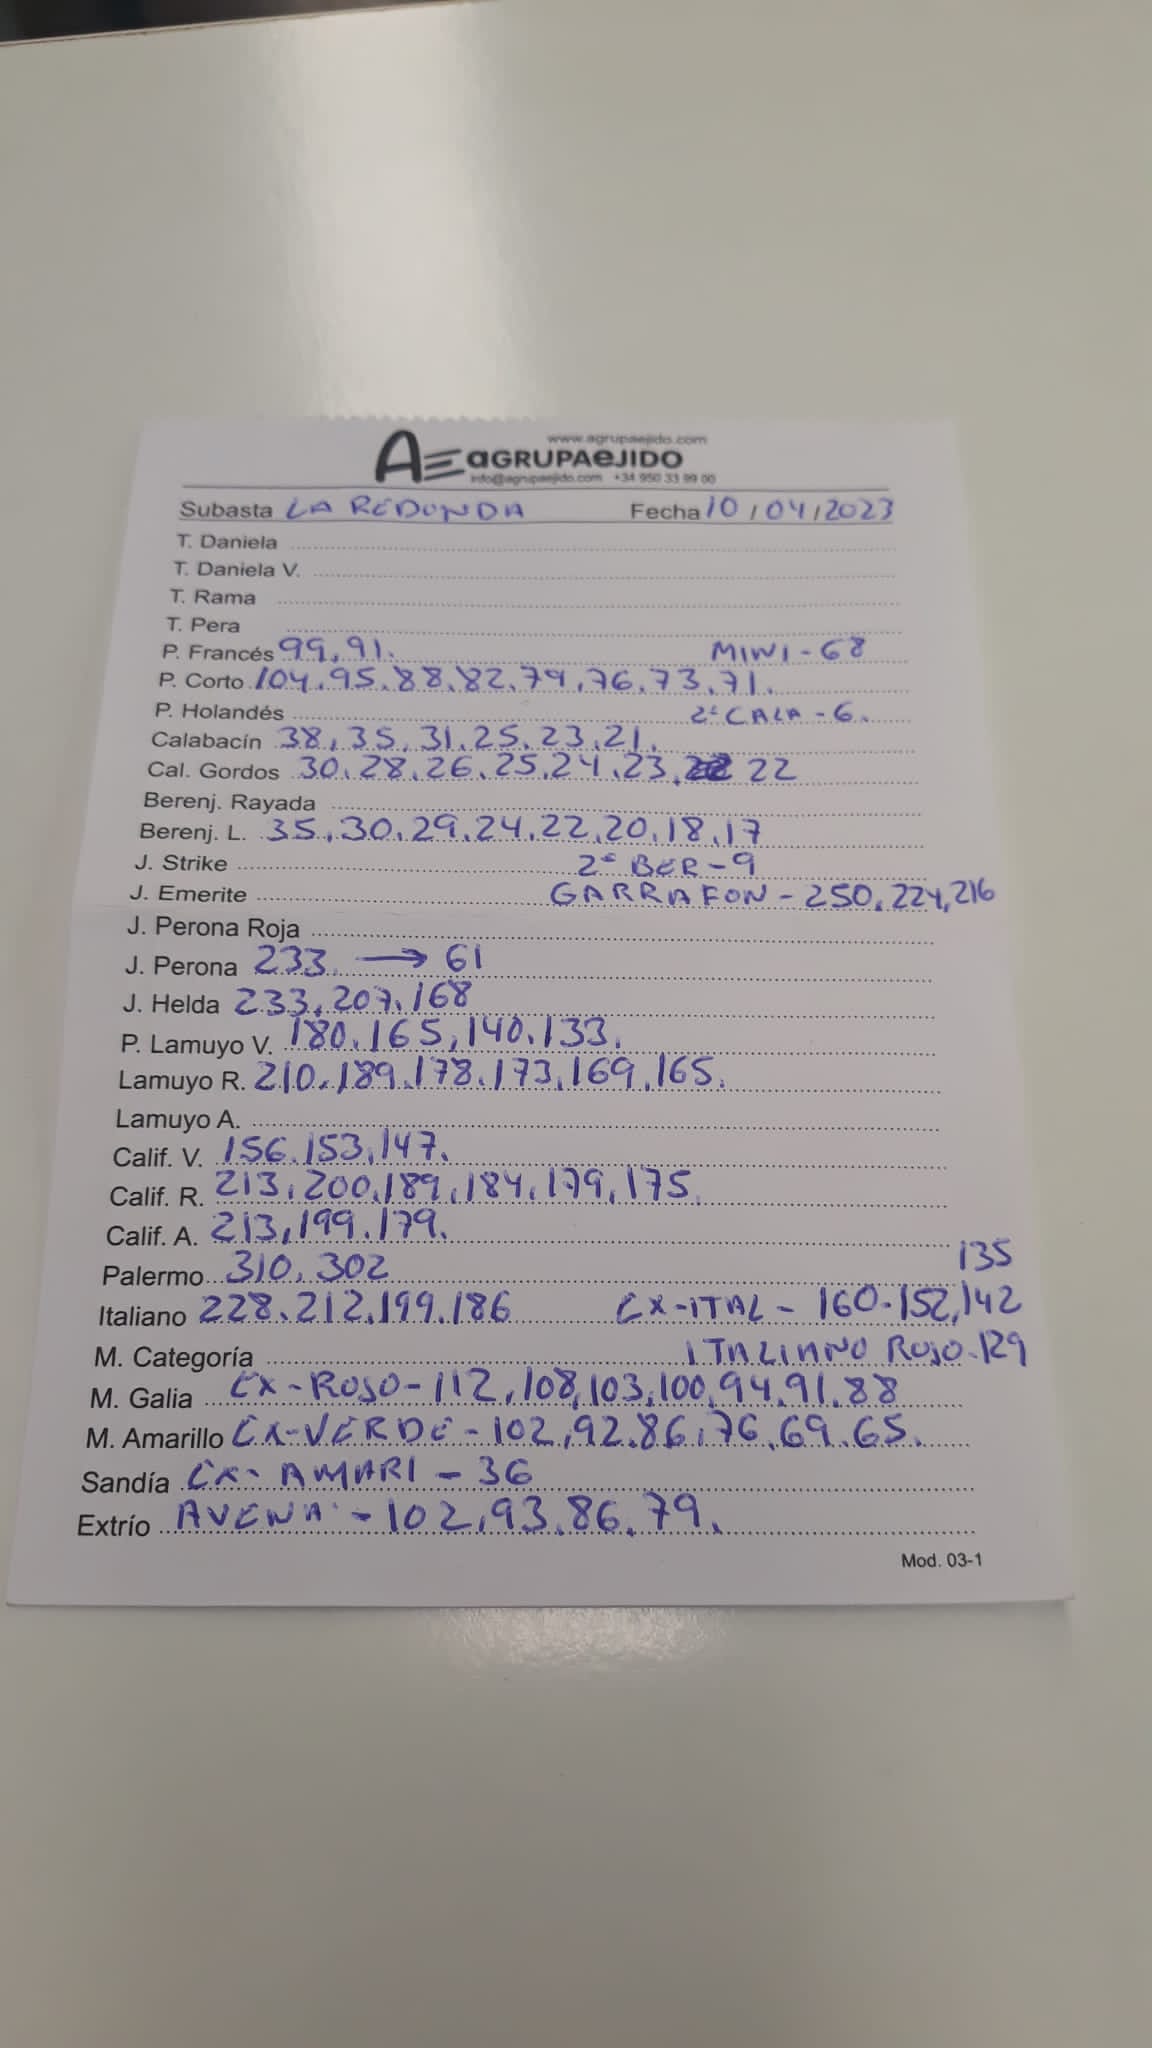 www.agrupaejido.com
AE aGRUPAeJIDO
info@agrupaejido.com +34 950 33 99 00
Subasta LA REDONDA Fecha 10/04/2023
T. Daniela
T. Daniela V.
T. Rama
T. Pera
P. Francés 99,91. MINI-68
P. Corto 104.95.88.82.79,76.73.71.
P. Holandés 2ª CALA-6.
Calabacín 38,35,31.25.23.21.
Cal. Gordos 30.28.26.25.24.23. 22
Berenj. Rayada
Berenj. L. 35.30.29.24.22.20.18.17
J. Strike 2ª BER-9
J. Emerite GARRAFON-250.224,216
J. Perona Roja
J. Perona 233. → 61
J. Helda 233,207.168
P. Lamuyo V. 180.165,140.133.
Lamuyo R. 210.189.178.173.169.165.
Lamuyo A.
Calif. V. 156.153.147.
Calif. R. 213,200.189.184.179.175.
Calif. A. 213,199.179.
135
Palermo 310.302
Italiano 228.212.199.186 CX-ITAL-160.152,142
M. Categoría ITALIANO ROJO-129
M. Galia CX-ROJO-112,108,103,100.94.91.88
M. Amarillo CX-VERDE-102,92.86,76.69.65.
Sandía CX-AMARI-36
Extrío AVENA-102,93.86.79.
Mod. 03-1